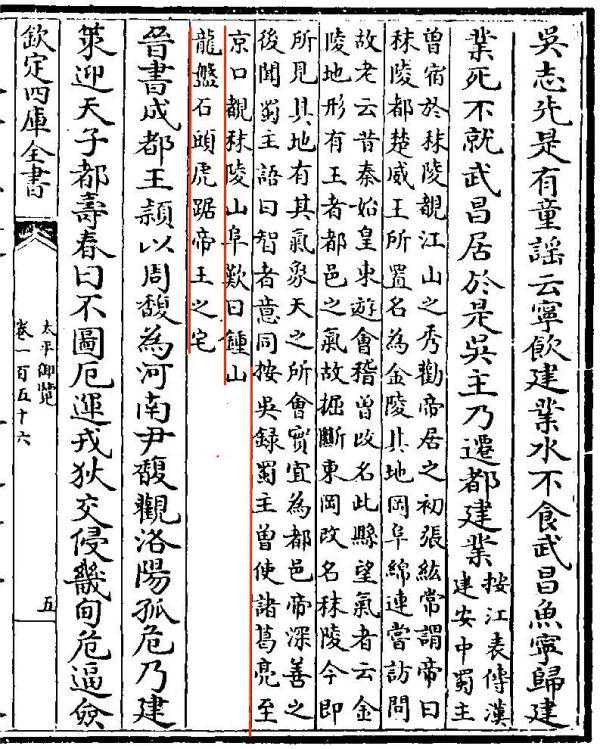 吳志先是有童謠云寧飲建業水不食武昌魚寧歸建
業死不就武昌居於是吳主乃遷都建業
按江表傳漢
建安中蜀主
曾宿於秣陵覩江山之秀勸帝居之初張紘常謂帝曰
秣陵都楚威王所置名為金陵其地岡阜綿連嘗訪問
故老云昔秦始皇東遊會稽曾改名此縣望氣者云金
陵地形有王者都邑之氣故掘斷東岡改名秣陵今即
所見其地有其氣象天之所會實宜為都邑帝深善之
後聞蜀主語曰智者意同按吳録蜀主曾使諸葛亮至
京口覩秣陵山阜歎曰鍾山
龍盤石頭虎踞帝王之宅
晉書成都王頴以周馥為河南尹馥觀洛陽孤危乃建
策迎天子都壽春曰不圖厄運戎狄交侵畿甸危逼僉
欽定四庫全書
太平御覽
卷一百五十六
五